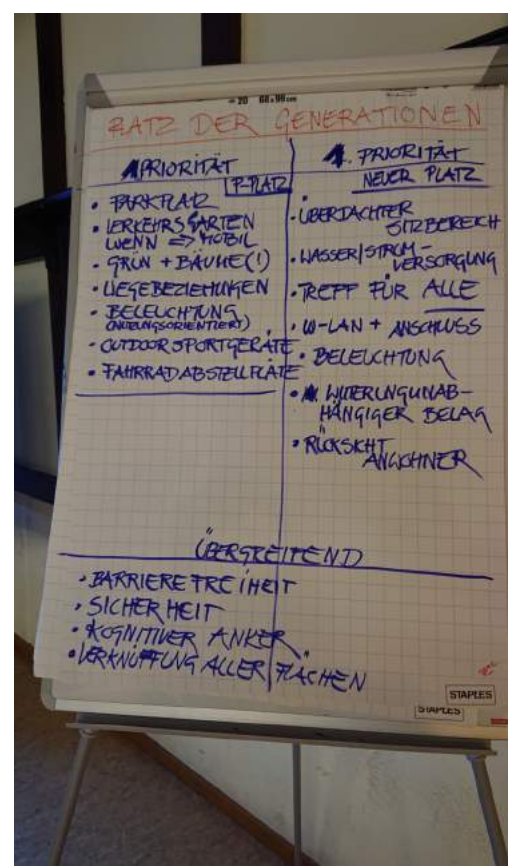 20 68x99cm
PLATZ DER GENERATIONEN
1 PRIORITÄT
P-PLATZ
• PARKPLATZ
• VERKEHRSGARTEN
WENN => MOBIL
• GRÜN + BÄUME(!)
• WEGEBEZIEHUNGEN
• BELEUCHTUNG
(NUTZUNGSORIENTIERT)
• OUTDOORSPORTGERÄTE
• FAHRRADABSTELLPLÄTZE
1. PRIORITÄT
NEUER PLATZ
• ÜBERDACHTER
SITZBEREICH
• WASSER/STROM-
VERSORGUNG
• TREFF FÜR ALLE
• W-LAN + ANSCHLUSS
• BELEUCHTUNG
• WITTERUNGUNAB-
HÄNGIGER BELAG
• RÜCKSICHT
ANWOHNER
ÜBERGREIFEND
• BARRIEREFREIHEIT
• SICHERHEIT
• KOGNITIVER ANKER
• VERKNÜPFUNG ALLER FLÄCHEN
STAPLES
STAPLES